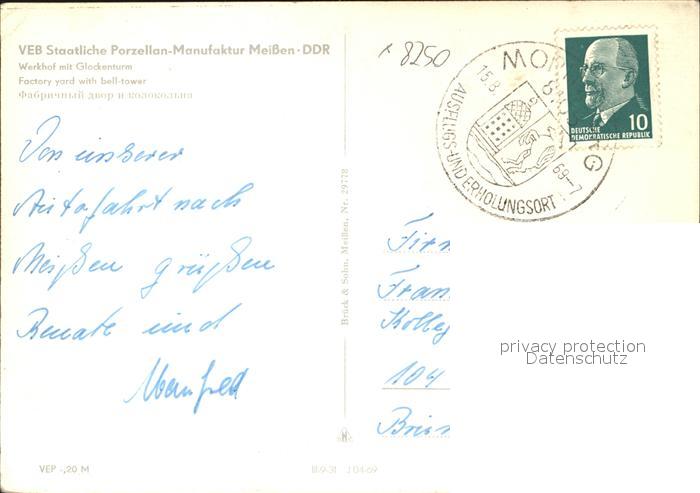 VEB Staatliche Porzellan-Manufaktur Meißen · DDR
Werkhof mit Glockenturm
Factory yard with bell-tower
Фабричный двор и колокольня
Von unserer
Autofahrt nach
Meißen grüßen
Renate und
Manfred
VEP -,20 M
III-9-31 J 04-69
Brück & Sohn, Meißen, Nr. 29778
8250
15.8.
69-7
AUSFLUGS- UND ERHOLUNGSORT
10
DEUTSCHE
DEMOKRATISCHE REPUBLIK
Firm
Fran
Kolleg
104
privacy protection
Datenschutz